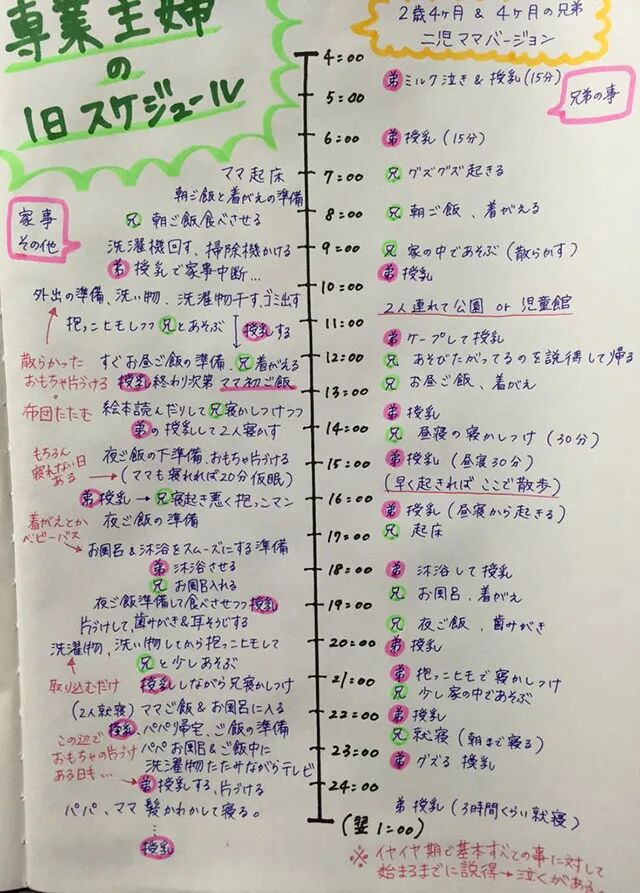 専業主婦
の
1日スケジュール
2歳4ヶ月 & 4ヶ月の兄弟
二児ママバージョン
兄弟の事
家事
その他
4:00
弟 ミルク泣き & 授乳(15分)
5:00
6:00
弟 授乳(15分)
ママ起床
7:00
兄 グズグズ起きる
朝ご飯と着がえの準備
兄 朝ご飯食べさせる
8:00
兄 朝ご飯、着がえる
洗濯機回す、掃除機かける
9:00
兄 家の中であそぶ(散らかす)
弟 授乳で家事中断…
弟 授乳
外出の準備、洗い物、洗濯物干す、ゴミ出す
10:00
2人連れて公園 or 児童館
抱っこヒモしつつ兄とあそぶ
授乳する
11:00
弟 ケープして授乳
散らかった
おもちゃ片づける。
すぐお昼ご飯の準備、兄着がえる
12:00
兄 あそびたがってるのを説得して帰る
授乳終わり次第ママ初ご飯
兄 お昼ご飯、着がえ
13:00
布団たたむ
絵本読んだりして兄寝かしつけつつ
弟 授乳
弟の授乳して2人寝かす
14:00
兄 昼寝の寝かしつけ(30分)
もちろん
寝れない日
ある
夜ご飯の下準備、おもちゃ片づける
(ママも寝れれば20分仮眠)
15:00
弟 授乳(昼寝30分)
(早く起きればここで散歩)
弟授乳 → 兄寝起き悪く抱っこマン
16:00
弟 授乳(昼寝から起きる)
夜ご飯の準備
着がえとか
ベビーバス
17:00
兄 起床
お風呂&沐浴をスムーズにする準備
弟 沐浴させる
18:00
弟 沐浴して授乳
兄 お風呂入れる
兄 お風呂、着がえ
夜ご飯準備して食べさせつつ授乳
19:00
兄 夜ご飯、歯みがき
片づけして、歯みがき&耳そうじする
洗濯物、洗い物してから抱っこヒモして
20:00
弟 授乳
兄と少しあそぶ
弟 抱っこヒモで寝かしつけ
取り込むだけ
授乳しながら兄寝かしつけ
21:00
兄 少し家の中であそぶ
(2人就寝)ママご飯&お風呂に入る
22:00
弟 授乳
授乳、パパ帰宅、ご飯の準備
兄 就寝(朝まで寝る)
この辺で
おもちゃの片づけ
ある日も…
パパお風呂&ご飯中に
23:00
弟 グズる 授乳
洗濯物たたみながらテレビ
弟 授乳する、片づける
24:00
パパ、ママ髪かわかして寝る。
弟 授乳(3時間くらい就寝)
(翌1:00)
授乳
※イヤイヤ期で基本すべての事に対して
始まるまでに説得→泣くがある。